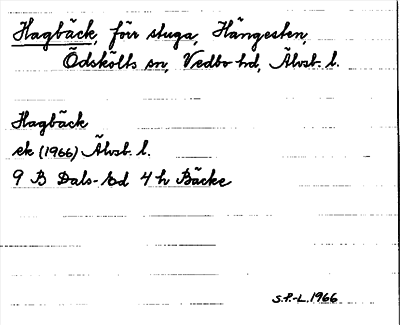 Hagbäck, förr stuga, Hängesten,
Ödskölts sn, Vedbo hd, Älvsb. l.
Hagbäck
ek (1966) Älvsb. l.
9 B Dals-Ed 4 h Bäcke
S.P.-L. 1966